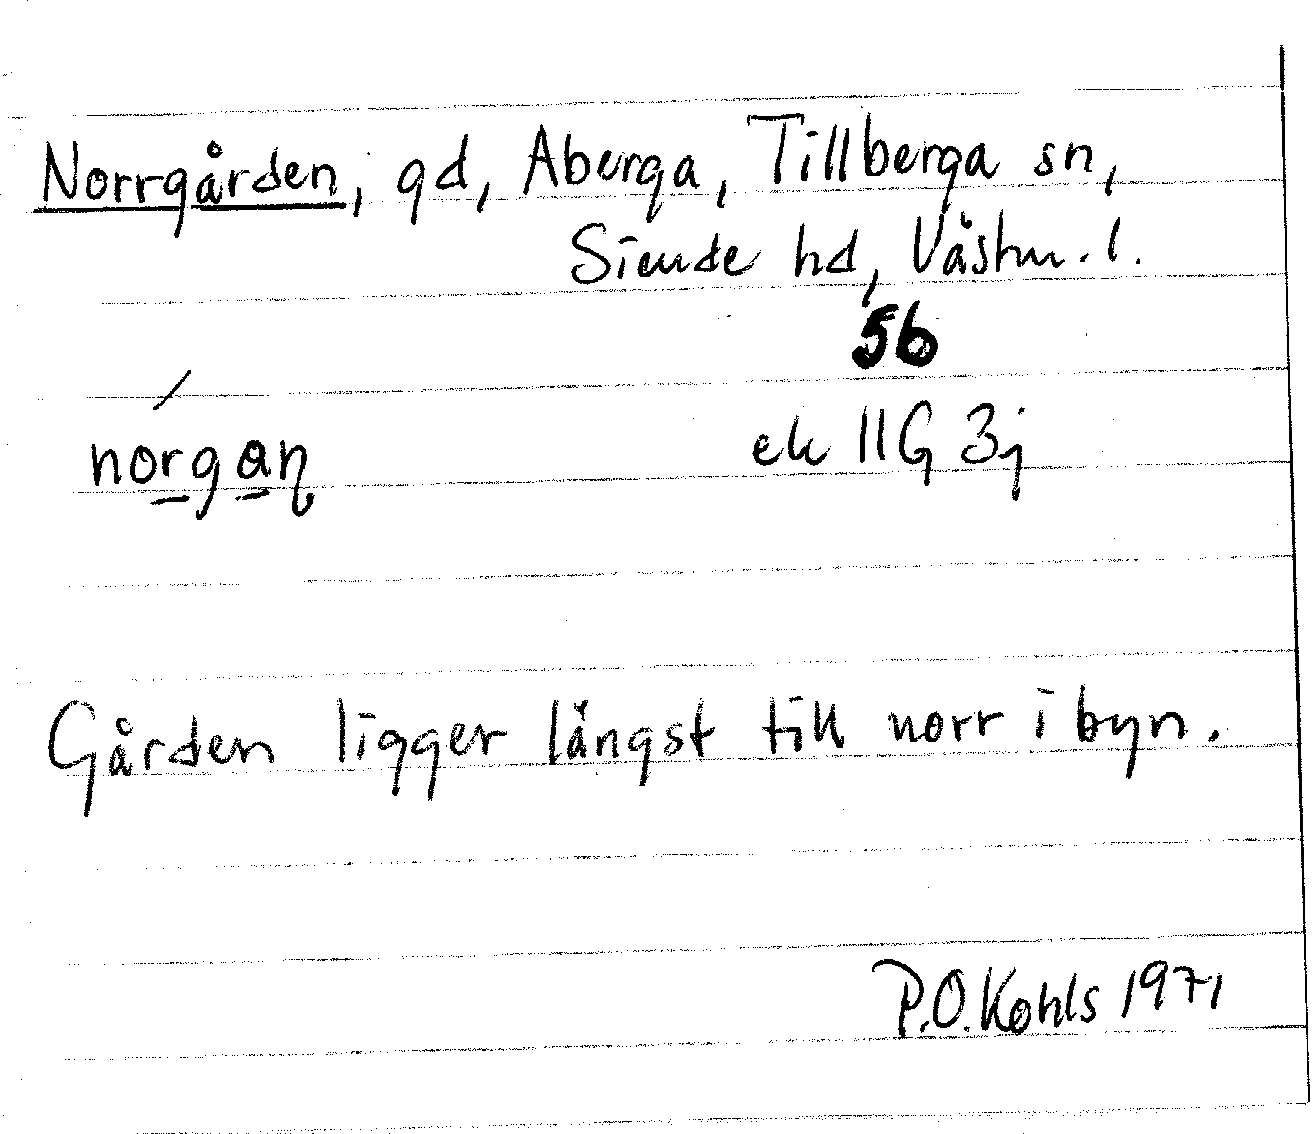 Norrgården, gd, Aberga, Tillberga sn,
Siende hd, Västm. l.
56
norgaɳ ek 11G 3j
Gården ligger längst till norr i byn.
P.O. Kohls 1971